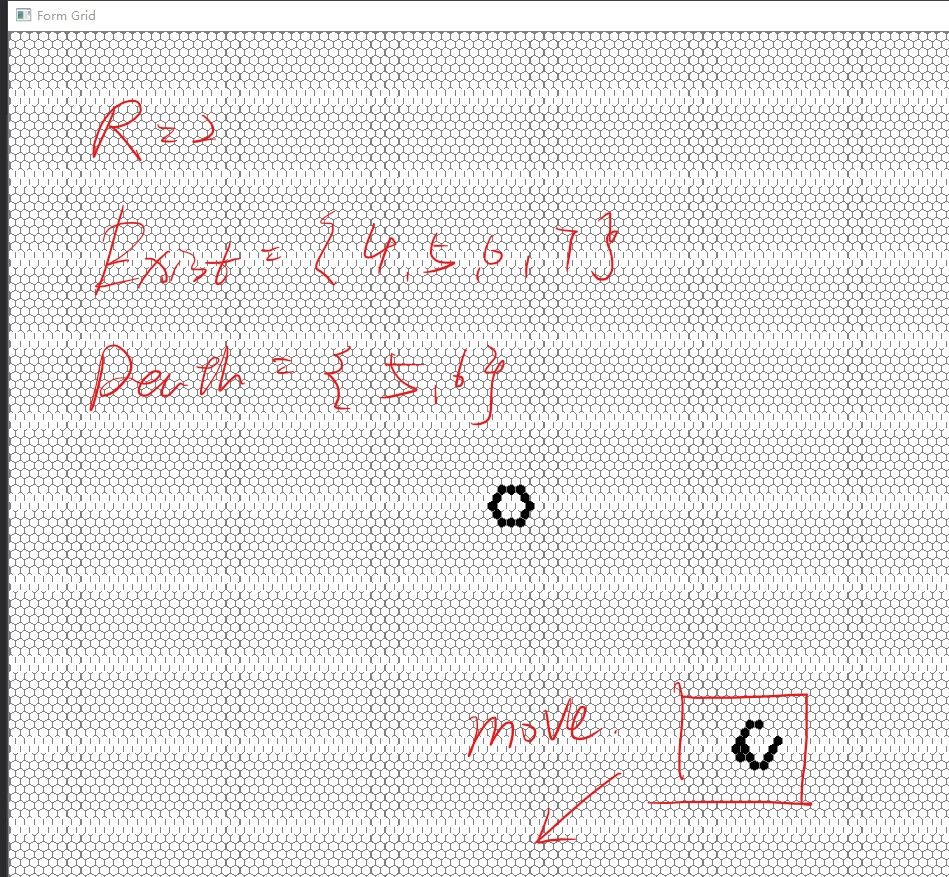 Form Grid
R=2
Exist={4,5,6,7}
Death={5,6}
move.